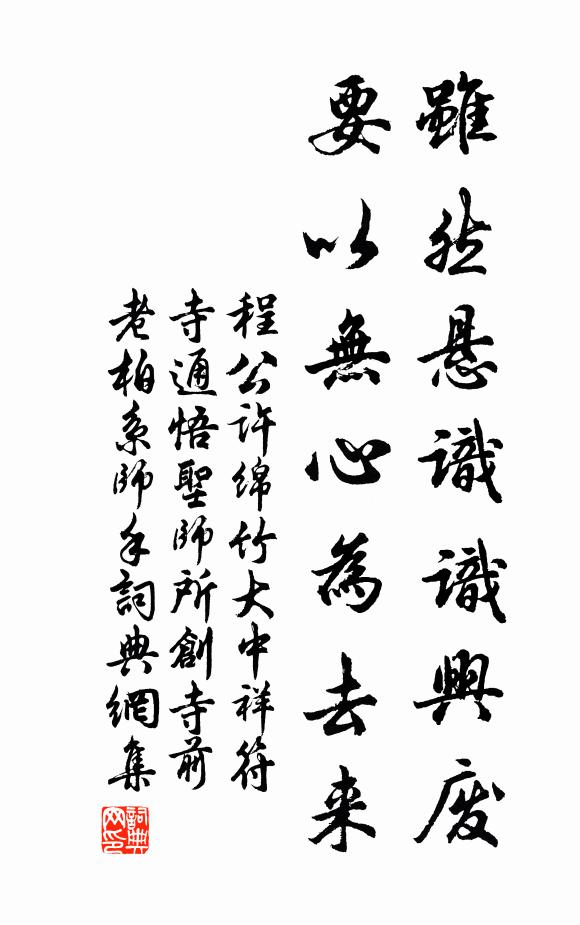 雖然懸識識興廢
要以無心為去來
程公許綿竹大中祥符
寺通悟聖師所創寺前
老柏系師手詞典網集
詞典
网印